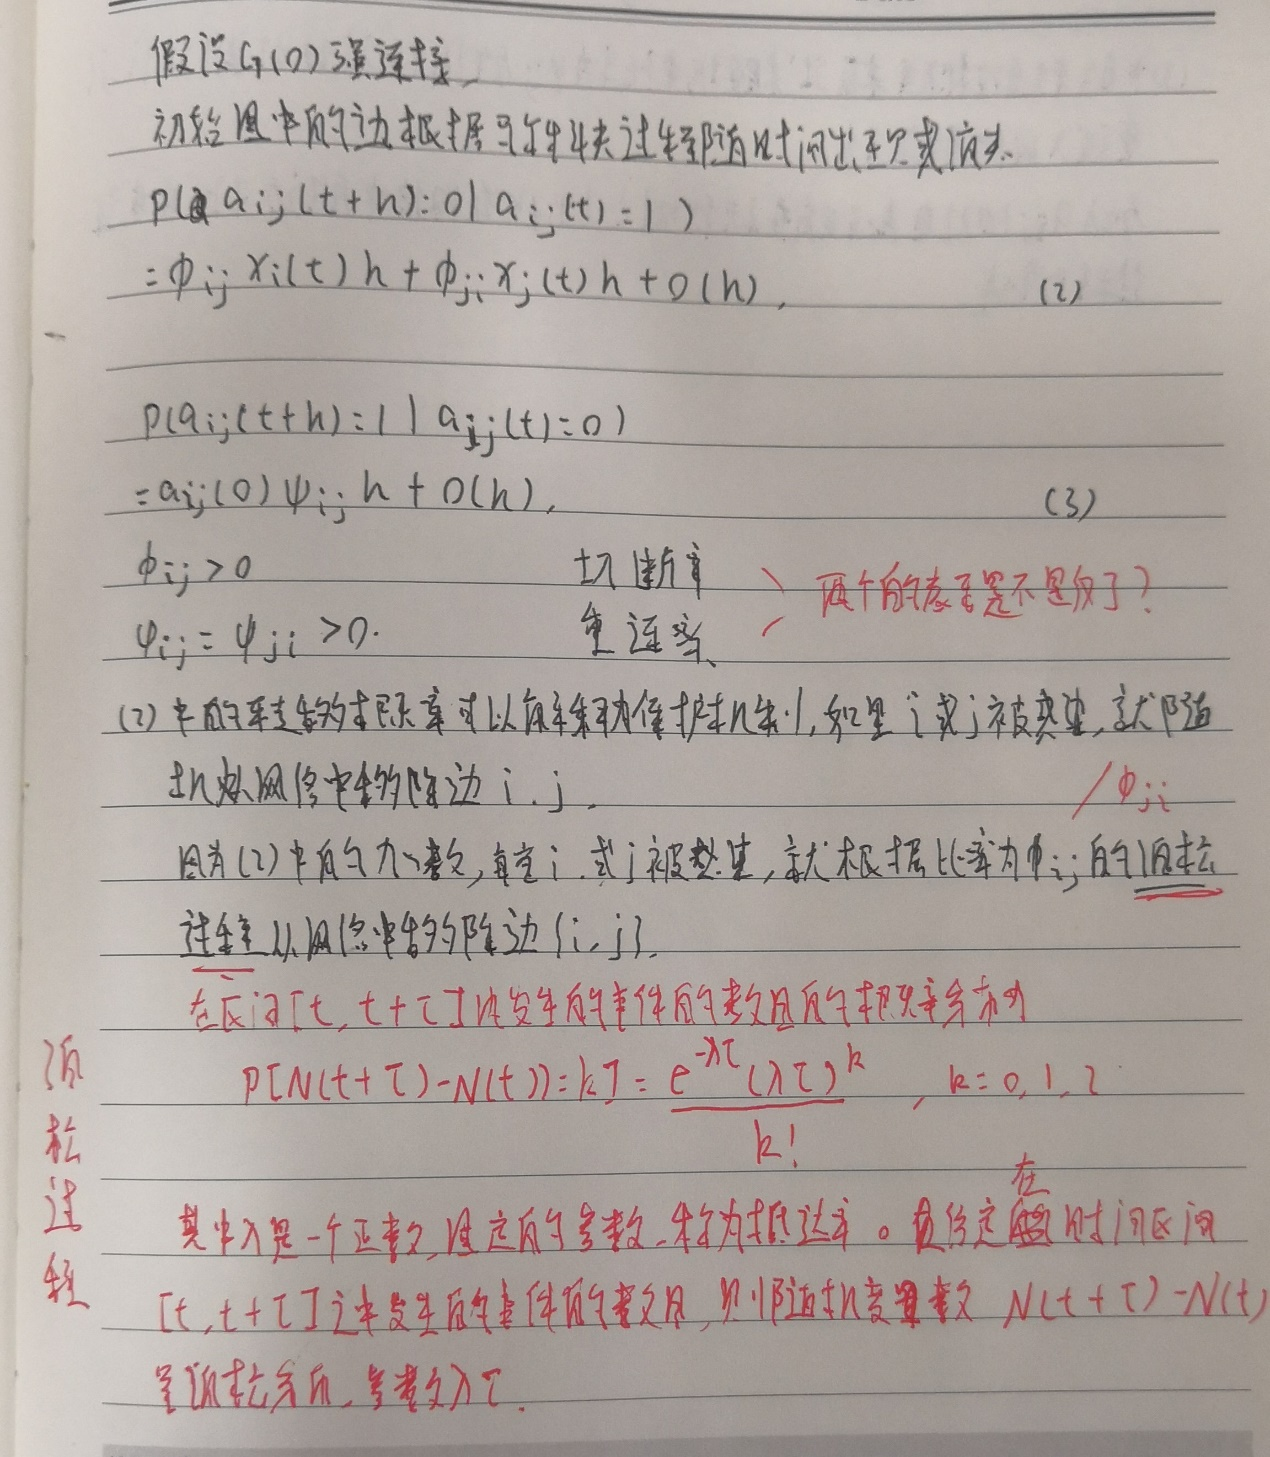 假设G(0)强连接
初始图中的边根据马尔科夫过程随时间出现或消失.
P(aij(t+h)=0|aij(t)=1)
=φij xi(t)h+φji xj(t)h+o(h), (2)
P(aij(t+h)=1|aij(t)=0)
=aij(0)ψij h+o(h), (3)
φij>0 切断率
ψij=ψji>0. 重连率、
两个的表示是不是反了?
(2)中的转移的概率可以解释为维护机制,如果i或j被感染,就随
机从网络中移除边i.j.
/φji
因为(2)中的九参数,每当i.或j被感染,就根据比率为φij的泊松
过程从网络中移除边{i,j}.
在区间[t,t+τ]内发生的事件的数目的概率分布为
P[N(t+τ)-N(t))=k]=e^-λτ(λτ)^k/k!, k=0,1,2
泊松过程
其中λ是一个正数,固定的参数,称为抵达率。在给定在时间区间
[t,t+τ]之中发生的事件的数目,则随机变量数 N(t+τ)-N(t)
呈泊松分布,参数λτ.